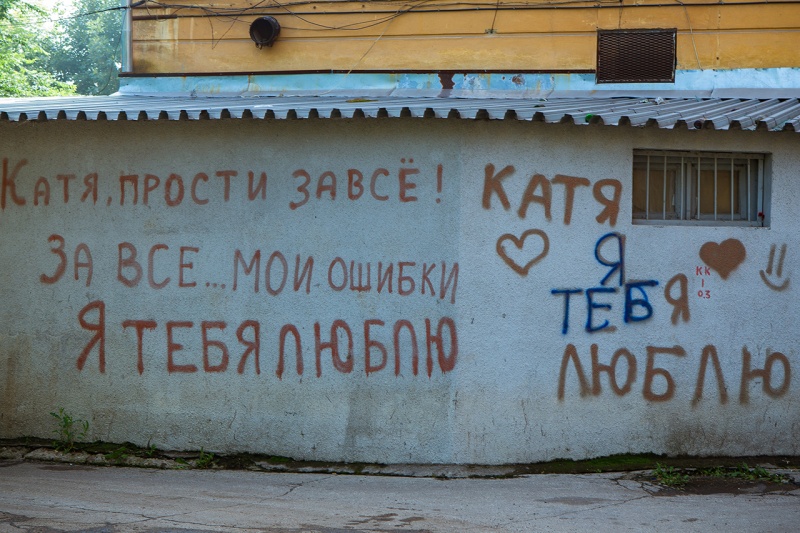 Катя, прости за всё!
За все... мои ошибки
Я тебя люблю
Катя
Я
тебя
люблю
КК
1
0.3